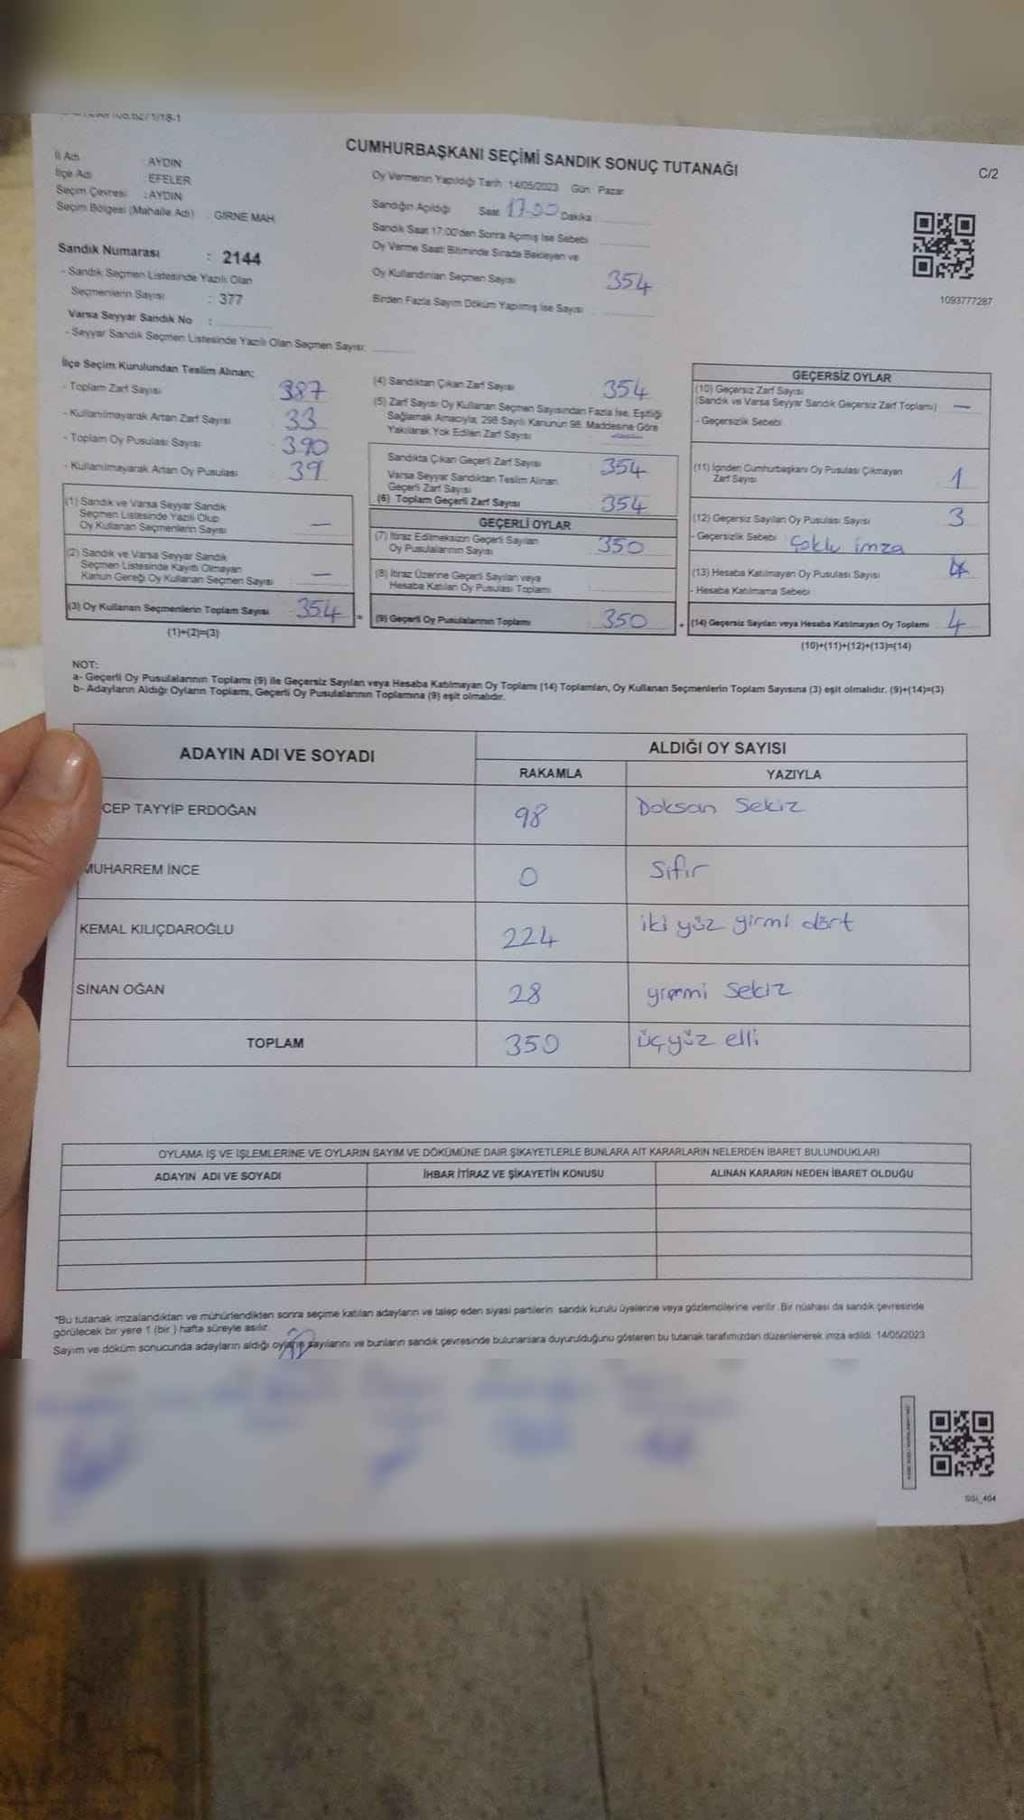 CUMHURBAŞKANI SEÇİMİ SANDIK SONUÇ TUTANAĞI
C/2
İl Adı : AYDIN
İlçe Adı : EFELER
Seçim Çevresi : AYDIN
Seçim Bölgesi (Mahalle Adı) : GİRNE MAH
Oy Vermenin Yapıldığı Tarih 14/05/2023 Gün Pazar
Sandığın Açıldığı Saat 17.00 Dakika
Sandık Saat 17:00'den Sonra Açılmış İse Sebebi
Oy Verme Saati Bitiminde Sırada Bekleyen ve
Oy Kullandırılan Seçmen Sayısı 354
Birden Fazla Sayım Döküm Yapılmış İse Sayısı
1093777287
Sandık Numarası : 2144
- Sandık Seçmen Listesinde Yazılı Olan
Seçmenlerin Sayısı : 377
Varsa Seyyar Sandık No :
- Seyyar Sandık Seçmen Listesinde Yazılı Olan Seçmen Sayısı:
İlçe Seçim Kurulundan Teslim Alınan;
- Toplam Zarf Sayısı 387
- Kullanılmayarak Artan Zarf Sayısı 33
- Toplam Oy Pusulası Sayısı 390
- Kullanılmayarak Artan Oy Pusulası 39
(1) Sandık ve Varsa Seyyar Sandık
Seçmen Listesinde Yazılı Olup
Oy Kullanan Seçmenlerin Sayısı —
(2) Sandık ve Varsa Seyyar Sandık
Seçmen Listesinde Kayıtlı Olmayan
Kanun Gereği Oy Kullanan Seçmen Sayısı —
(3) Oy Kullanan Seçmenlerin Toplam Sayısı 354
(1)+(2)=(3)
(4) Sandıktan Çıkan Zarf Sayısı 354
(5) Zarf Sayısı Oy Kullanan Seçmen Sayısından Fazla İse, Eşitliği
Sağlamak Amacıyla, 298 Sayılı Kanunun 98. Maddesine Göre
Yakılarak Yok Edilen Zarf Sayısı —
Sandıkta Çıkan Geçerli Zarf Sayısı 354
Varsa Seyyar Sandıktan Teslim Alınan
Geçerli Zarf Sayısı
(6) Toplam Geçerli Zarf Sayısı 354
GEÇERLİ OYLAR
(7) İtiraz Edilmeksizin Geçerli Sayılan
Oy Pusulalarının Sayısı 350
(8) İtiraz Üzerine Geçerli Sayılan veya
Hesaba Katılan Oy Pusulası Toplamı
(9) Geçerli Oy Pusulalarının Toplamı 350
GEÇERSİZ OYLAR
(10) Geçersiz Zarf Sayısı
(Sandık ve Varsa Seyyar Sandık Geçersiz Zarf Toplamı) —
- Geçersizlik Sebebi
(11) İçinden Cumhurbaşkanı Oy Pusulası Çıkmayan
Zarf Sayısı 1
(12) Geçersiz Sayılan Oy Pusulası Sayısı 3
- Geçersizlik Sebebi Çoklu imza
(13) Hesaba Katılmayan Oy Pusulası Sayısı
- Hesaba Katılmama Sebebi
(14) Geçersiz Sayılan veya Hesaba Katılmayan Oy Toplamı 4
(10)+(11)+(12)+(13)=(14)
NOT:
a- Geçerli Oy Pusulalarının Toplamı (9) ile Geçersiz Sayılan veya Hesaba Katılmayan Oy Toplam (14) Toplamları, Oy Kullanan Seçmenlerin Toplam Sayısına (3) eşit olmalıdır. (9)+(14)=(3)
b- Adayların Aldığı Oyların Toplamı, Geçerli Oy Pusulalarının Toplamına (9) eşit olmalıdır.
ADAYIN ADI VE SOYADI
ALDIĞI OY SAYISI
RAKAMLA YAZIYLA
CEP TAYYİP ERDOĞAN 98 Doksan Sekiz
MUHARREM İNCE 0 Sıfır
KEMAL KILIÇDAROĞLU 224 iki yüz yirmi dört
SİNAN OĞAN 28 yirmi Sekiz
TOPLAM 350 üçyüz elli
OYLAMA İŞ VE İŞLEMLERİNE VE OYLARIN SAYIM VE DÖKÜMÜNE DAİR ŞİKAYETLERLE BUNLARA AİT KARARLARIN NELERDEN İBARET BULUNDUKLARI
ADAYIN ADI VE SOYADI İHBAR İTİRAZ VE ŞİKAYETİN KONUSU ALINAN KARARIN NEDEN İBARET OLDUĞU
*Bu tutanak imzalandıktan ve mühürlendikten sonra seçime katılan adayların ve talep eden siyasi partilerin sandık kurulu üyelerine veya gözlemcilerine verilir. Bir nüshası da sandık çevresinde
görülecek bir yere 1 (bir) hafta süreyle asılır.
Sayım ve döküm sonucunda adayların aldığı oyların sayılarını ve bunların sandık çevresinde bulunanlara duyurulduğunu gösteren bu tutanak tarafımızdan düzenlenerek imza edildi. 14/05/2023